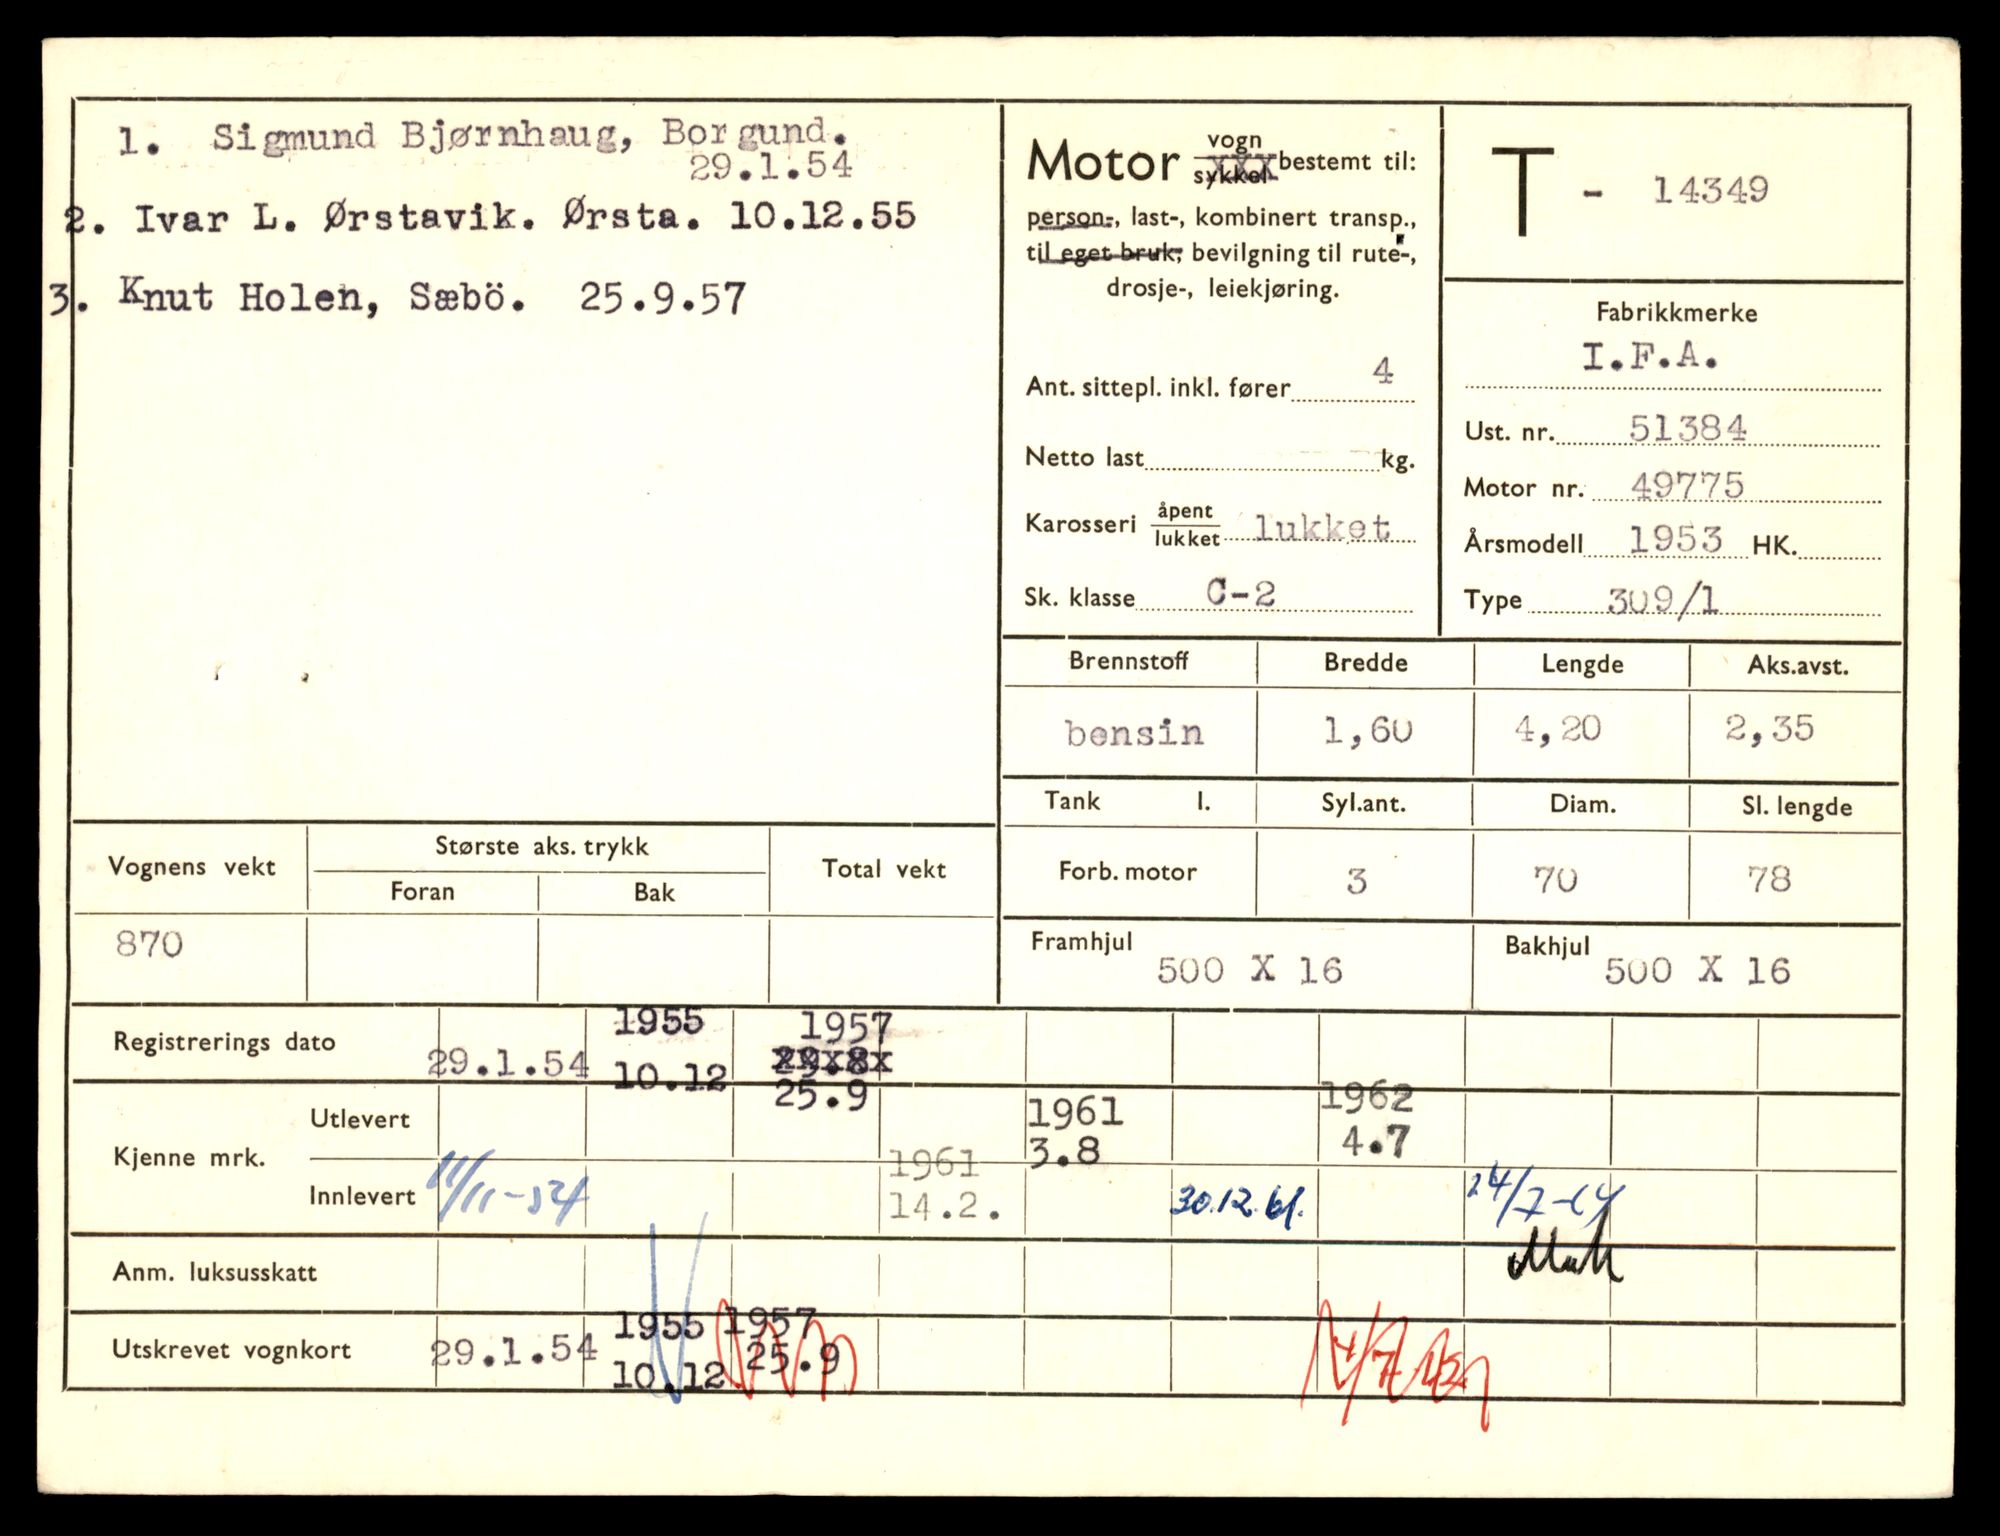 1. Sigmund Bjørnhaug, Borgund.
29.1.54
2. Ivar L. Ørstavik. Ørsta. 10.12.55
3. Knut Holen, Sæbö. 25.9.57
Motor vogn/sykkel bestemt til:
person-, last-, kombinert transp.,
til eget bruk, bevilgning til rute-,
drosje-, leiekjøring.
Ant. sittepl. inkl. fører 4
Netto last kg.
Karosseri åpent/lukket lukket
Sk. klasse C-2
T - 14349
Fabrikkmerke
I.F.A.
Ust. nr. 51384
Motor nr. 49775
Årsmodell 1953 HK.
Type 309/1
Brennstoff Bredde Lengde Aks.avst.
bensin 1,60 4,20 2,35
Tank l. Syl.ant. Diam. Sl. lengde
Forb. motor 3 70 78
Framhjul 500 X 16 Bakhjul 500 X 16
Vognens vekt Største aks. trykk Total vekt
Foran Bak
870
Registrerings dato 29.1.54 1955 10.12 1957 29.8 25.9
Kjenne mrk.
Utlevert 1961 3.8 1962 4.7
Innlevert 11/11-54 1961 14.2. 30.12.61. 24/7-64
Anm. luksusskatt
Utskrevet vognkort 29.1.54 1955 10.12 1957 25.9